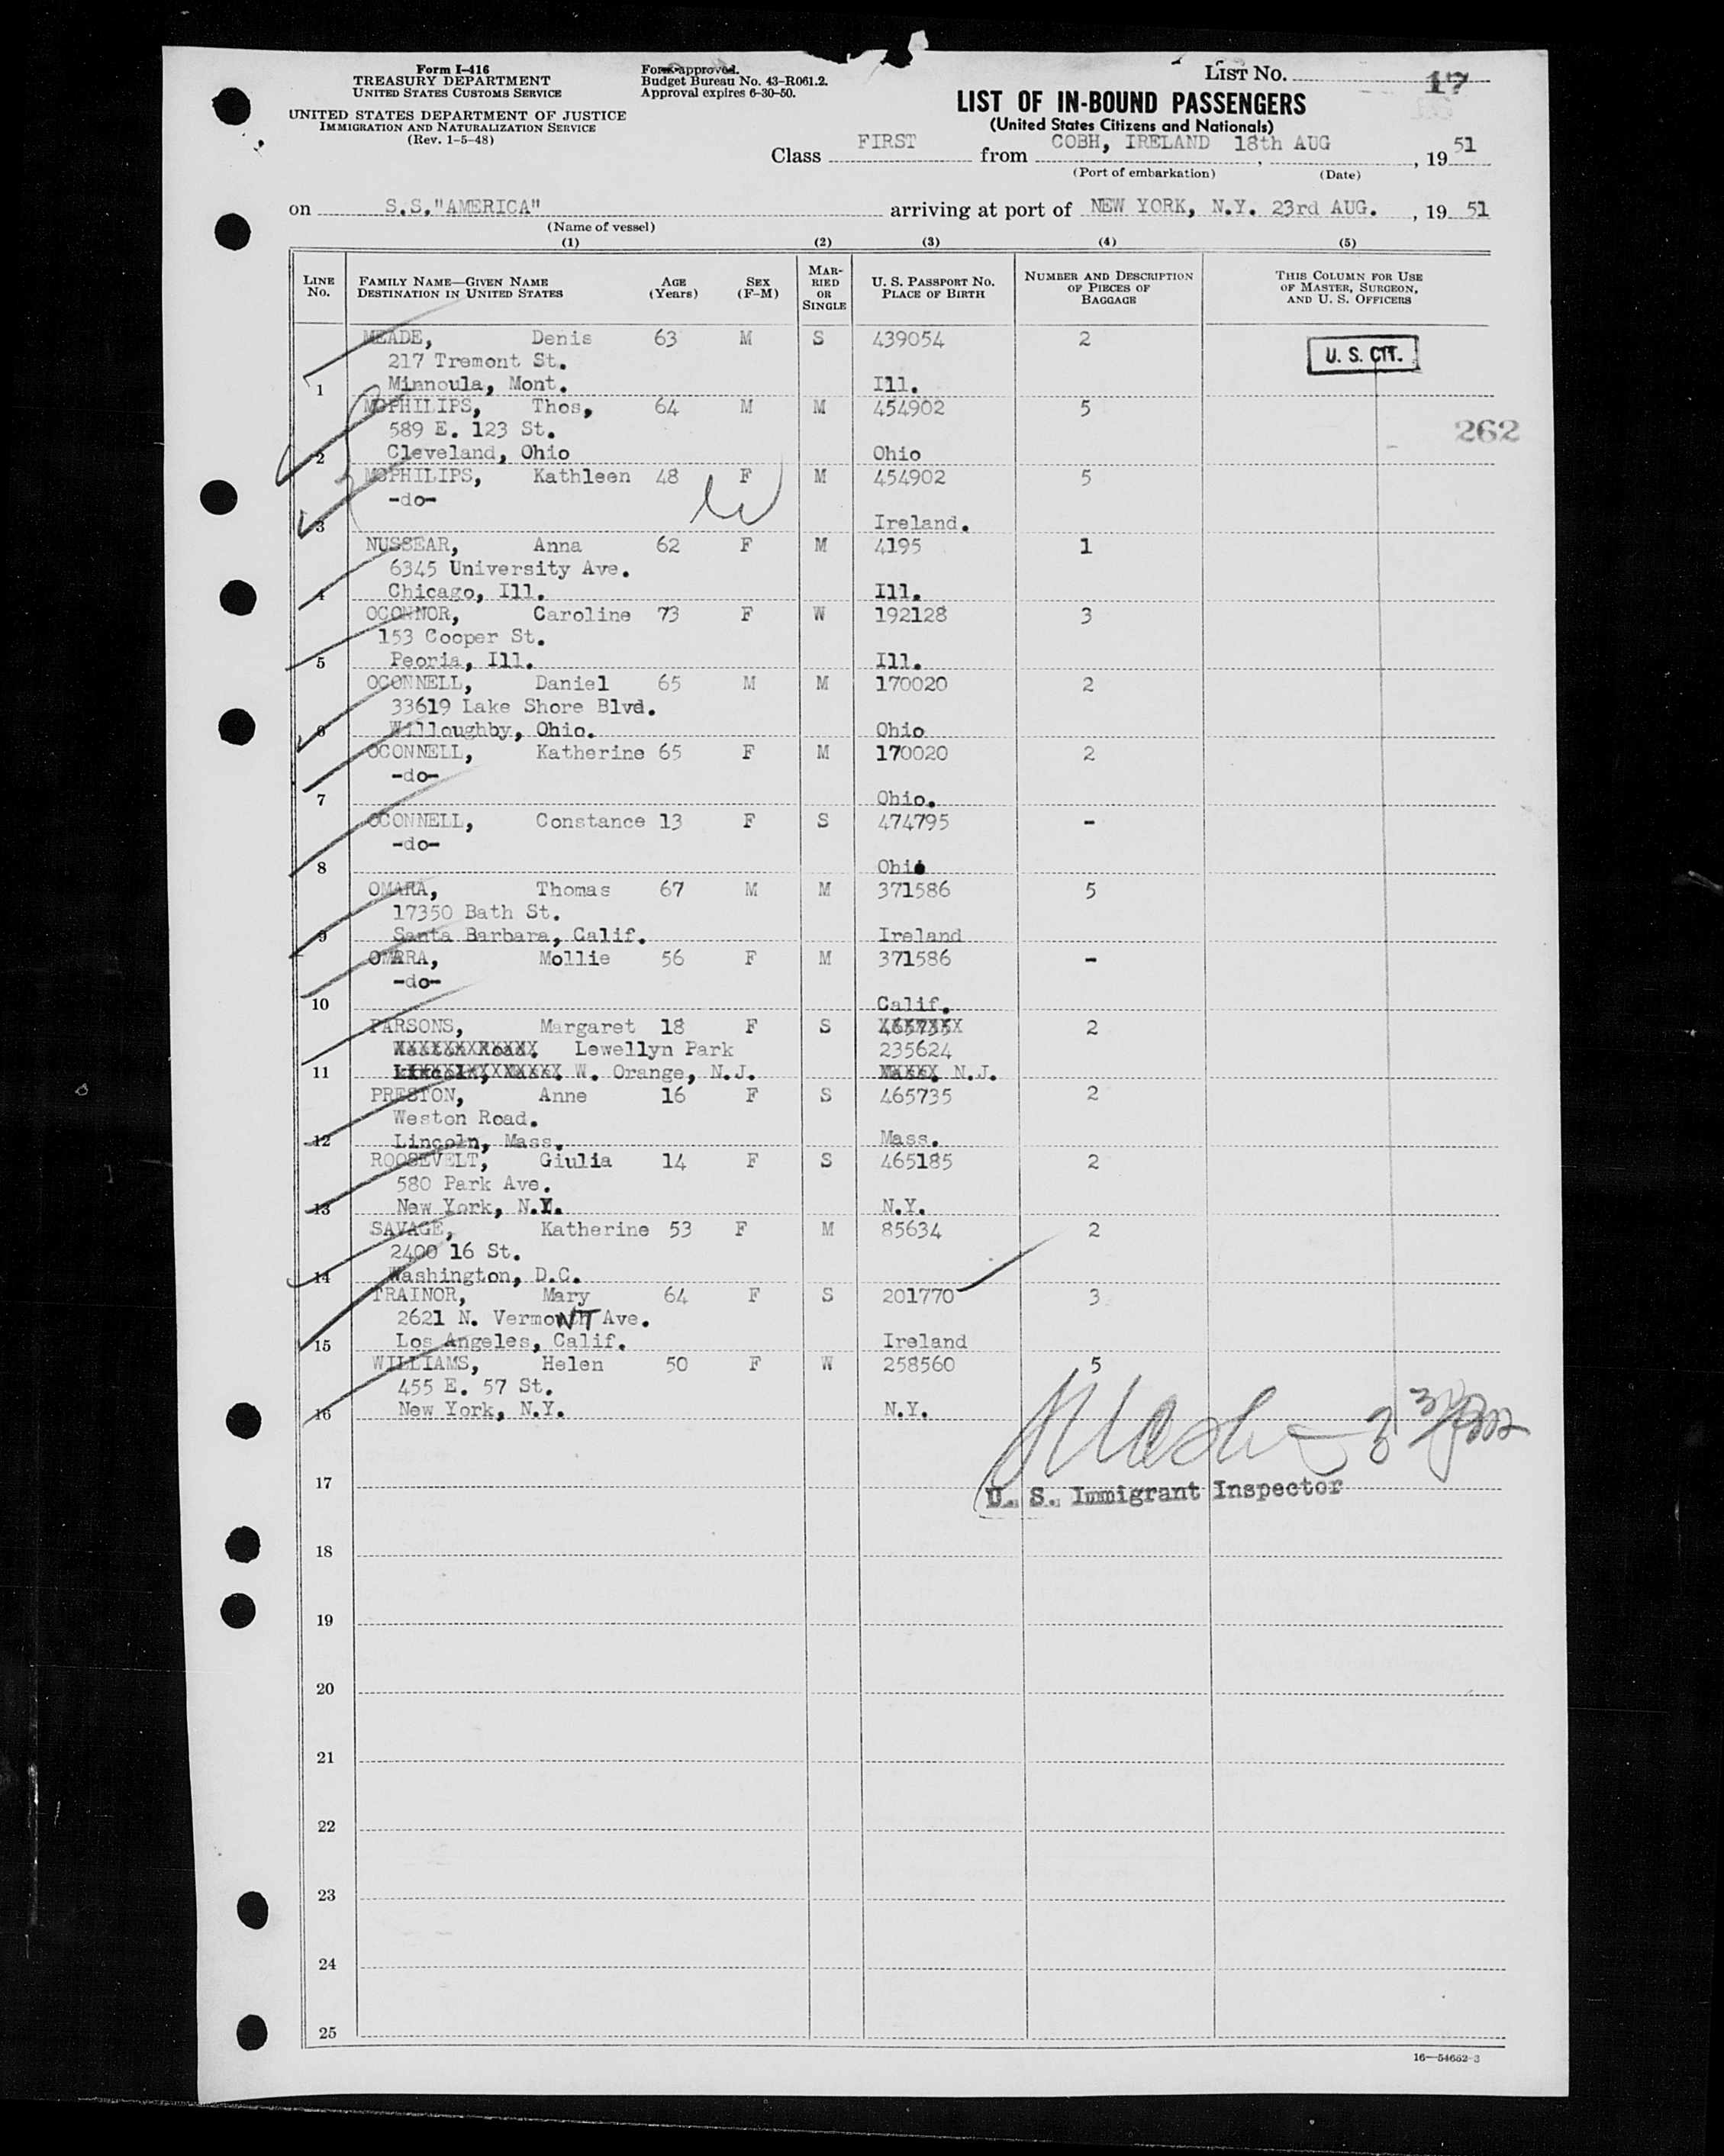 Form I-416
TREASURY DEPARTMENT
UNITED STATES CUSTOMS SERVICE
UNITED STATES DEPARTMENT OF JUSTICE
IMMIGRATION AND NATURALIZATION SERVICE
(Rev. 1-5-48)
Form approved.
Budget Bureau No. 43-R061.2.
Approval expires 6-30-50.
LIST NO. 17
LIST OF IN-BOUND PASSENGERS
(United States Citizens and Nationals)
Class FIRST from COBH, IRELAND 18th AUG , 19 51
(Port of embarkation) (Date)
on S.S."AMERICA" arriving at port of NEW YORK, N.Y. 23rd AUG. , 19 51
(Name of vessel)
(1) (2) (3) (4) (5)
LINE No. FAMILY NAME—GIVEN NAME DESTINATION IN UNITED STATES AGE (Years) SEX (F-M) MAR-RIED OR SINGLE U. S. PASSPORT NO. PLACE OF BIRTH NUMBER AND DESCRIPTION OF PIECES OF BAGGAGE THIS COLUMN FOR USE OF MASTER, SURGEON, AND U. S. OFFICERS
MEADE, Denis 63 M S 439054 2 U. S. CIT.
217 Tremont St.
1 Minnoula, Mont. Ill.
MOPHILIPS, Thos, 64 M M 454902 5
589 E. 123 St. 262
2 Cleveland, Ohio Ohio
MOPHILIPS, Kathleen 48 F M 454902 5
-do-
3 Ireland.
NUSSEAR, Anna 62 F M 4195 1
6345 University Ave.
4 Chicago, Ill. Ill.
OCONNOR, Caroline 73 F W 192128 3
153 Cooper St.
5 Peoria, Ill. Ill.
OCONNELL, Daniel 65 M M 170020 2
33619 Lake Shore Blvd.
6 Willoughby, Ohio. Ohio
OCONNELL, Katherine 65 F M 170020 2
-do-
7 Ohio.
OCONNELL, Constance 13 F S 474795 -
-do-
8 Ohio
OMARA, Thomas 67 M M 371586 5
17350 Bath St.
9 Santa Barbara, Calif. Ireland
OMARA, Mollie 56 F M 371586 -
-do-
10 Calif.
PARSONS, Margaret 18 F S 465735 2
Weston Road. Lewellyn Park 235624
11 Lincoln, Mass. W. Orange, N.J. Mass. N.J.
PRESTON, Anne 16 F S 465735 2
Weston Road.
12 Lincoln, Mass. Mass.
ROOSEVELT, Giulia 14 F S 465185 2
580 Park Ave.
13 New York, N.Y. N.Y.
SAVAGE, Katherine 53 F M 85634 2
2400 16 St.
14 Washington, D.C.
TRAINOR, Mary 64 F S 201770 3
2621 N. Vermont Ave.
15 Los Angeles, Calif. Ireland
WILLIAMS, Helen 50 F W 258560 5
455 E. 57 St.
16 New York, N.Y. N.Y.
17 U. S. Immigrant Inspector
18
19
20
21
22
23
24
25
16—54652-3